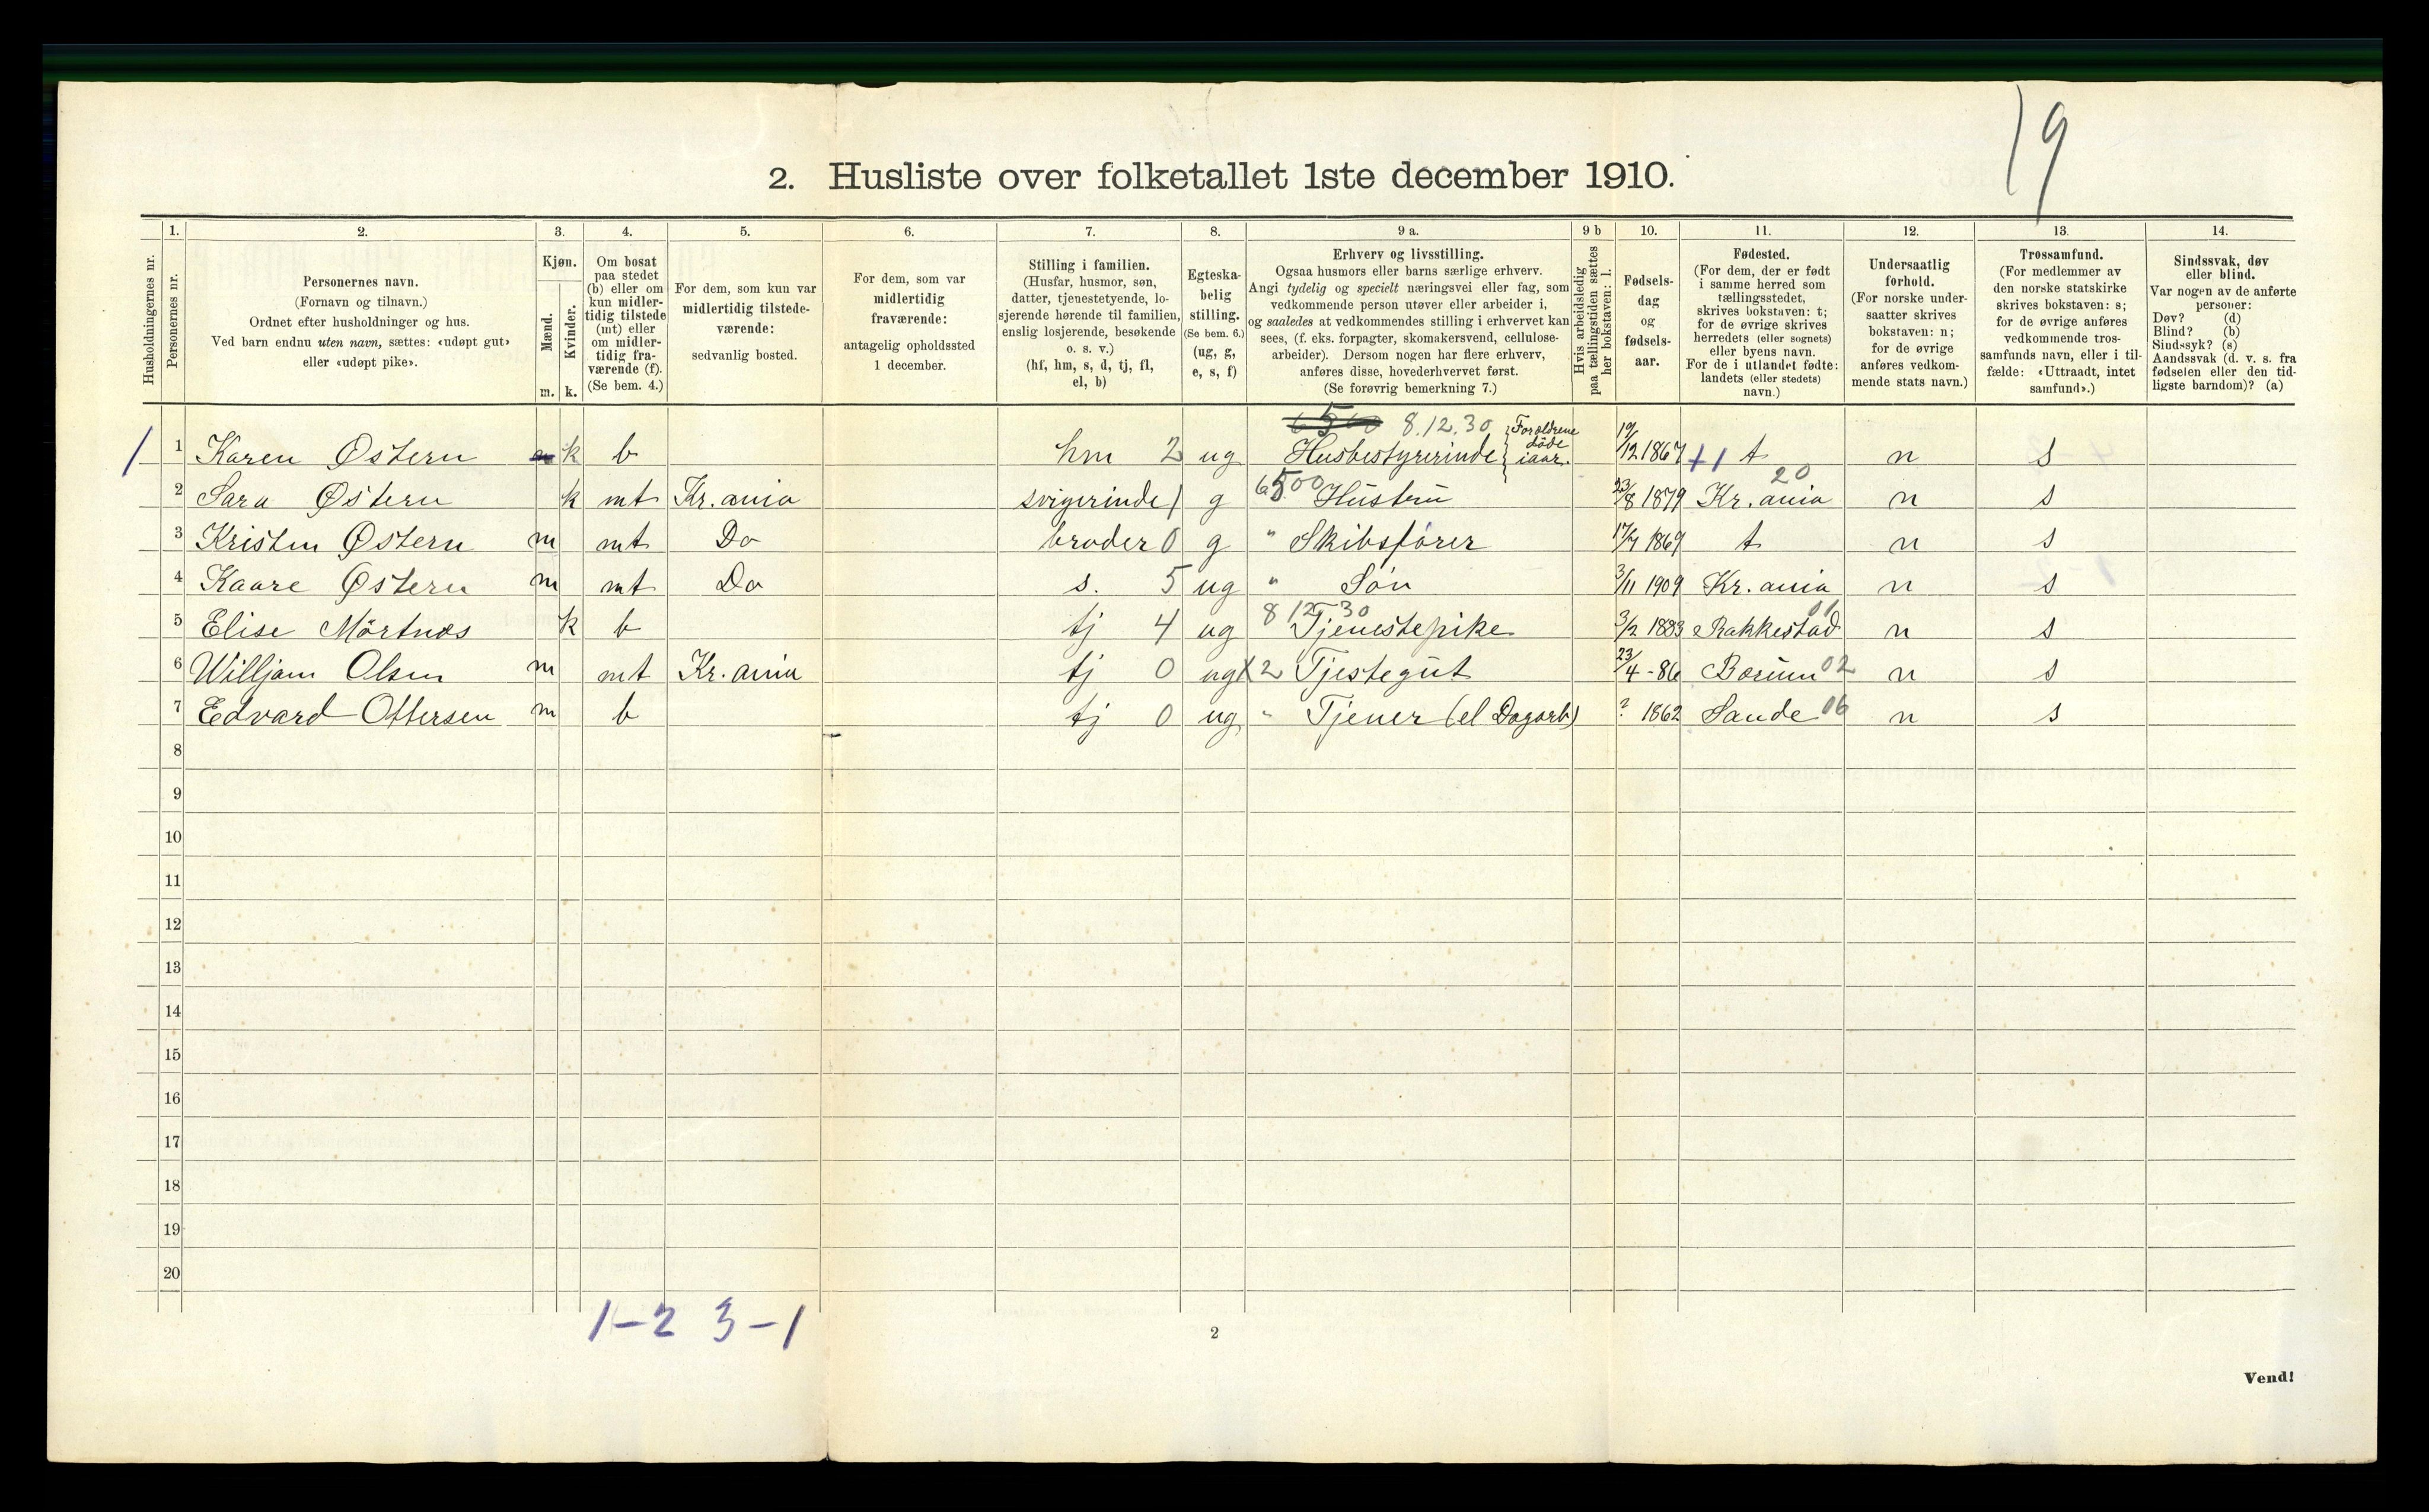 19
2. Husliste over folketallet 1ste december 1910.
Husholdningernes nr.
1. Personernes nr.
2. Personernes navn.
(Fornavn og tilnavn.)
Ordnet efter husholdninger og hus.
Ved barn endnu uten navn, sættes: «udøpt gut»
eller «udøpt pike».
3. Kjøn.
Mænd. m.
Kvinder. k.
4. Om bosat
paa stedet
(b) eller om
kun midler-
tidig tilstede
(mt) eller
om midler-
tidig fra-
værende (f).
(Se bem. 4.)
5. For dem, som kun var
midlertidig tilstede-
værende:
sedvanlig bosted.
6. For dem, som var
midlertidig
fraværende:
antagelig opholdssted
1 december.
7. Stilling i familien.
(Husfar, husmor, søn,
datter, tjenestetyende, lo-
sjerende hørende til familien,
enslig losjerende, besøkende
o. s. v.)
(hf, hm, s, d, tj, fl,
el, b)
8. Egteska-
belig
stilling.
(Se bem. 6.)
(ug, g,
e, s, f)
9 a. Erhverv og livsstilling.
Ogsaa husmors eller barns særlige erhverv.
Angi tydelig og specielt næringsvei eller fag, som
vedkommende person utøver eller arbeider i,
og saaledes at vedkommendes stilling i erhvervet kan
sees, (f. eks. forpagter, skomakersvend, cellulose-
arbeider). Dersom nogen har flere erhverv,
anføres disse, hovederhvervet først.
(Se forøvrig bemerkning 7.)
9 b Hvis arbeidsledig
paa tællingstiden sættes
her bokstaven: l.
10. Fødsels-
dag
og
fødsels-
aar.
11. Fødested.
(For dem, der er født
i samme herred som
tællingsstedet,
skrives bokstaven: t;
for de øvrige skrives
herredets (eller sognets)
eller byens navn.
For de i utlandet fødte:
landets (eller stedets)
navn.)
12. Undersaatlig
forhold.
(For norske under-
saatter skrives
bokstaven: n;
for de øvrige
anføres vedkom-
mende stats navn.)
13. Trossamfund.
(For medlemmer av
den norske statskirke
skrives bokstaven: s;
for de øvrige anføres
vedkommende tros-
samfunds navn, eller i til-
fælde: «Uttraadt, intet
samfund».)
14. Sindssvak, døv
eller blind.
Var nogen av de anførte
personer:
Døv? (d)
Blind? (b)
Sindssyk? (s)
Aandssvak (d. v. s. fra
fødselen eller den tid-
ligste barndom)? (a)
8.12.30 Forældrene døde iaar.
1 1 Karen Østern k b hm 2 ug Husbestyrerinde 19/12 1867 +1 t n s
2 Sara Østern k mt Kr.ania svigerinde 1 g 6500 Hustru 23/8 1879 Kr.ania 20 n s
3 Kristen Østern m mt Do broder 0 g " Skibsfører 17/7 1869 t n s
4 Kaare Østern m mt Do s. 5 ug " Søn 3/11 1909 Kr.ania n s
5 Elise Mörtnæs k b tj 4 ug 8 12 30 Tjenestepike 3/2 1883 Rakkestad 01 n s
6 Willjam Olsen m mt Kr.ania tj 0 ug X2 Tjestegut 23/4 -86 Bærum 02 n s
7 Edvard Ottersen m b tj 0 ug " Tjener (el Dagarb) ? 1862 Sande 06 n s
8
9
10
11
12
13
14
15
16
17
18
19
20
1-2 3-1
2
Vend!